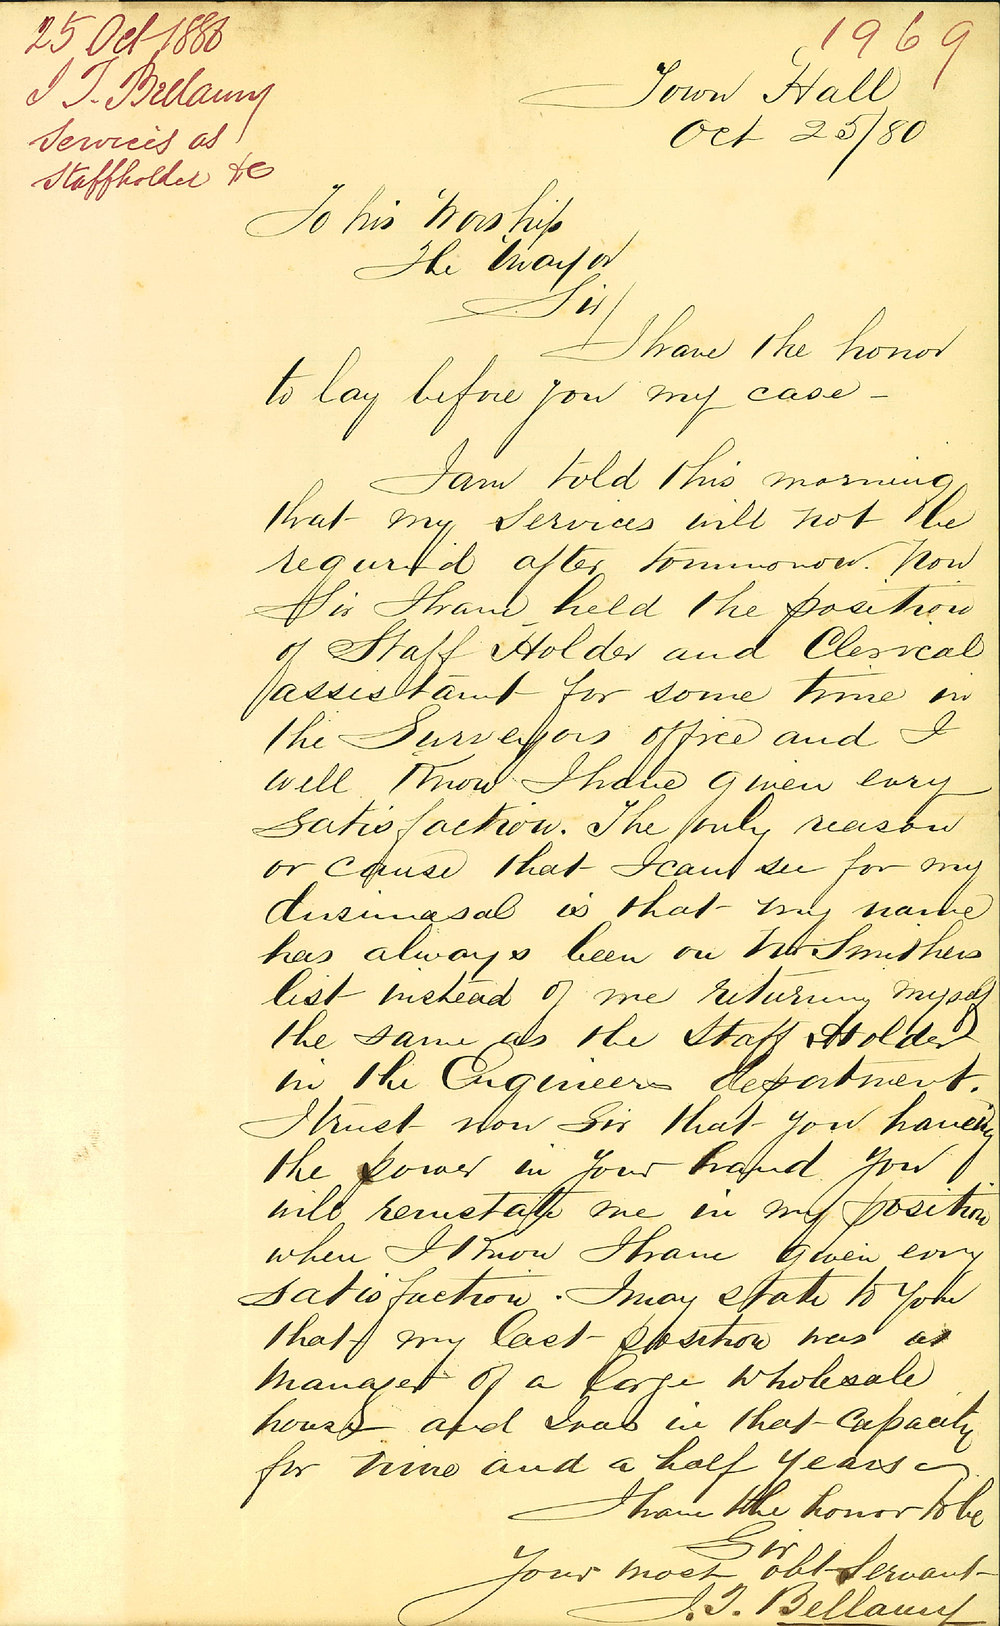 25 Oct 1880
J T. Bellamy
Services as
Staffholder &c
1969
Town Hall
Oct 25/80
To his Worship
The Mayor
Sir/
I have the honor
to lay before you my case -
I am told this morning
that my Services will not be
requried after tommorow. Now
Sir I have held the position
of Staff Holder and Clerical
assistant for some time in
the Surveyors office and I
well Know I have given evry
Satisfaction. The only reason
or cause that I can see for my
is that my name
has always been on Mr Smithers
list instead of me returning myself
the same as the Staff Holder
in the Engineers department.
I trust now Sir that you haveing
the power in your hand you
will reinstate me in my position
when I Know I have given evry
satisfaction. I may state to you
that my last position was as
Manager of a large Wholesale
house and I was in that Capacity
for nine and a half years
I have the honor to be
Sir
Your most obt Servant
J. T. Bellamy